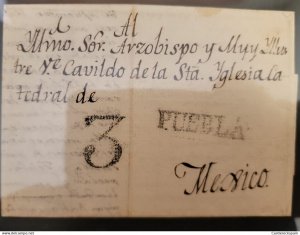 Al
Yllmo. Sor. Arzobispo y Muy Yllus
tre Ve. Cavildo de la Sta. Yglesia Ca
tedral de
3
PUEBLA
Mexico.